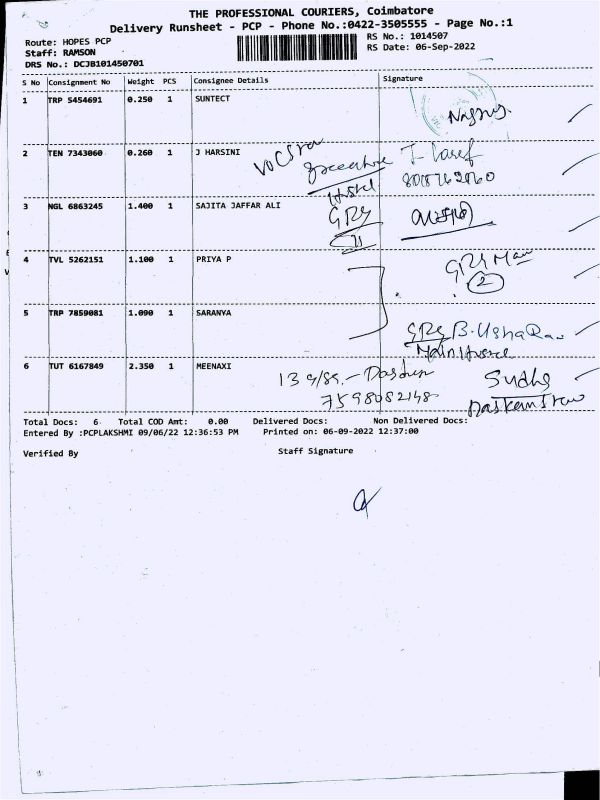 THE PROFESSIONAL COURIERS, Coimbatore
Delivery Runsheet - PCP - Phone No.:0422-3505555 - Page No.:1
Route: HOPES PCP
Staff: RAMSON
DRS No.: DCJB101450701
RS No.: 1014507
RS Date: 06-Sep-2022
S No Consignment No Weight PCS Consignee Details Signature
1 TRP 5454691 0.250 1 SUNTECT
2 TEN 7343060 0.260 1 J HARSINI
Hostel
3 NGL 6863245 1.400 1 SAJITA JAFFAR ALI
4 TVL 5262151 1.100 1 PRIYA P
2
5 TRP 7859081 1.090 1 SARANYA
GRG B. Usha Ra
6 TUT 6167849 2.350 1 MEENAXI
7598082148
Total Docs: 6 Total COD Amt: 0.00 Delivered Docs: Non Delivered Docs:
Entered By :PCPLAKSHMI 09/06/22 12:36:53 PM Printed on: 06-09-2022 12:37:00
Verified By Staff Signature